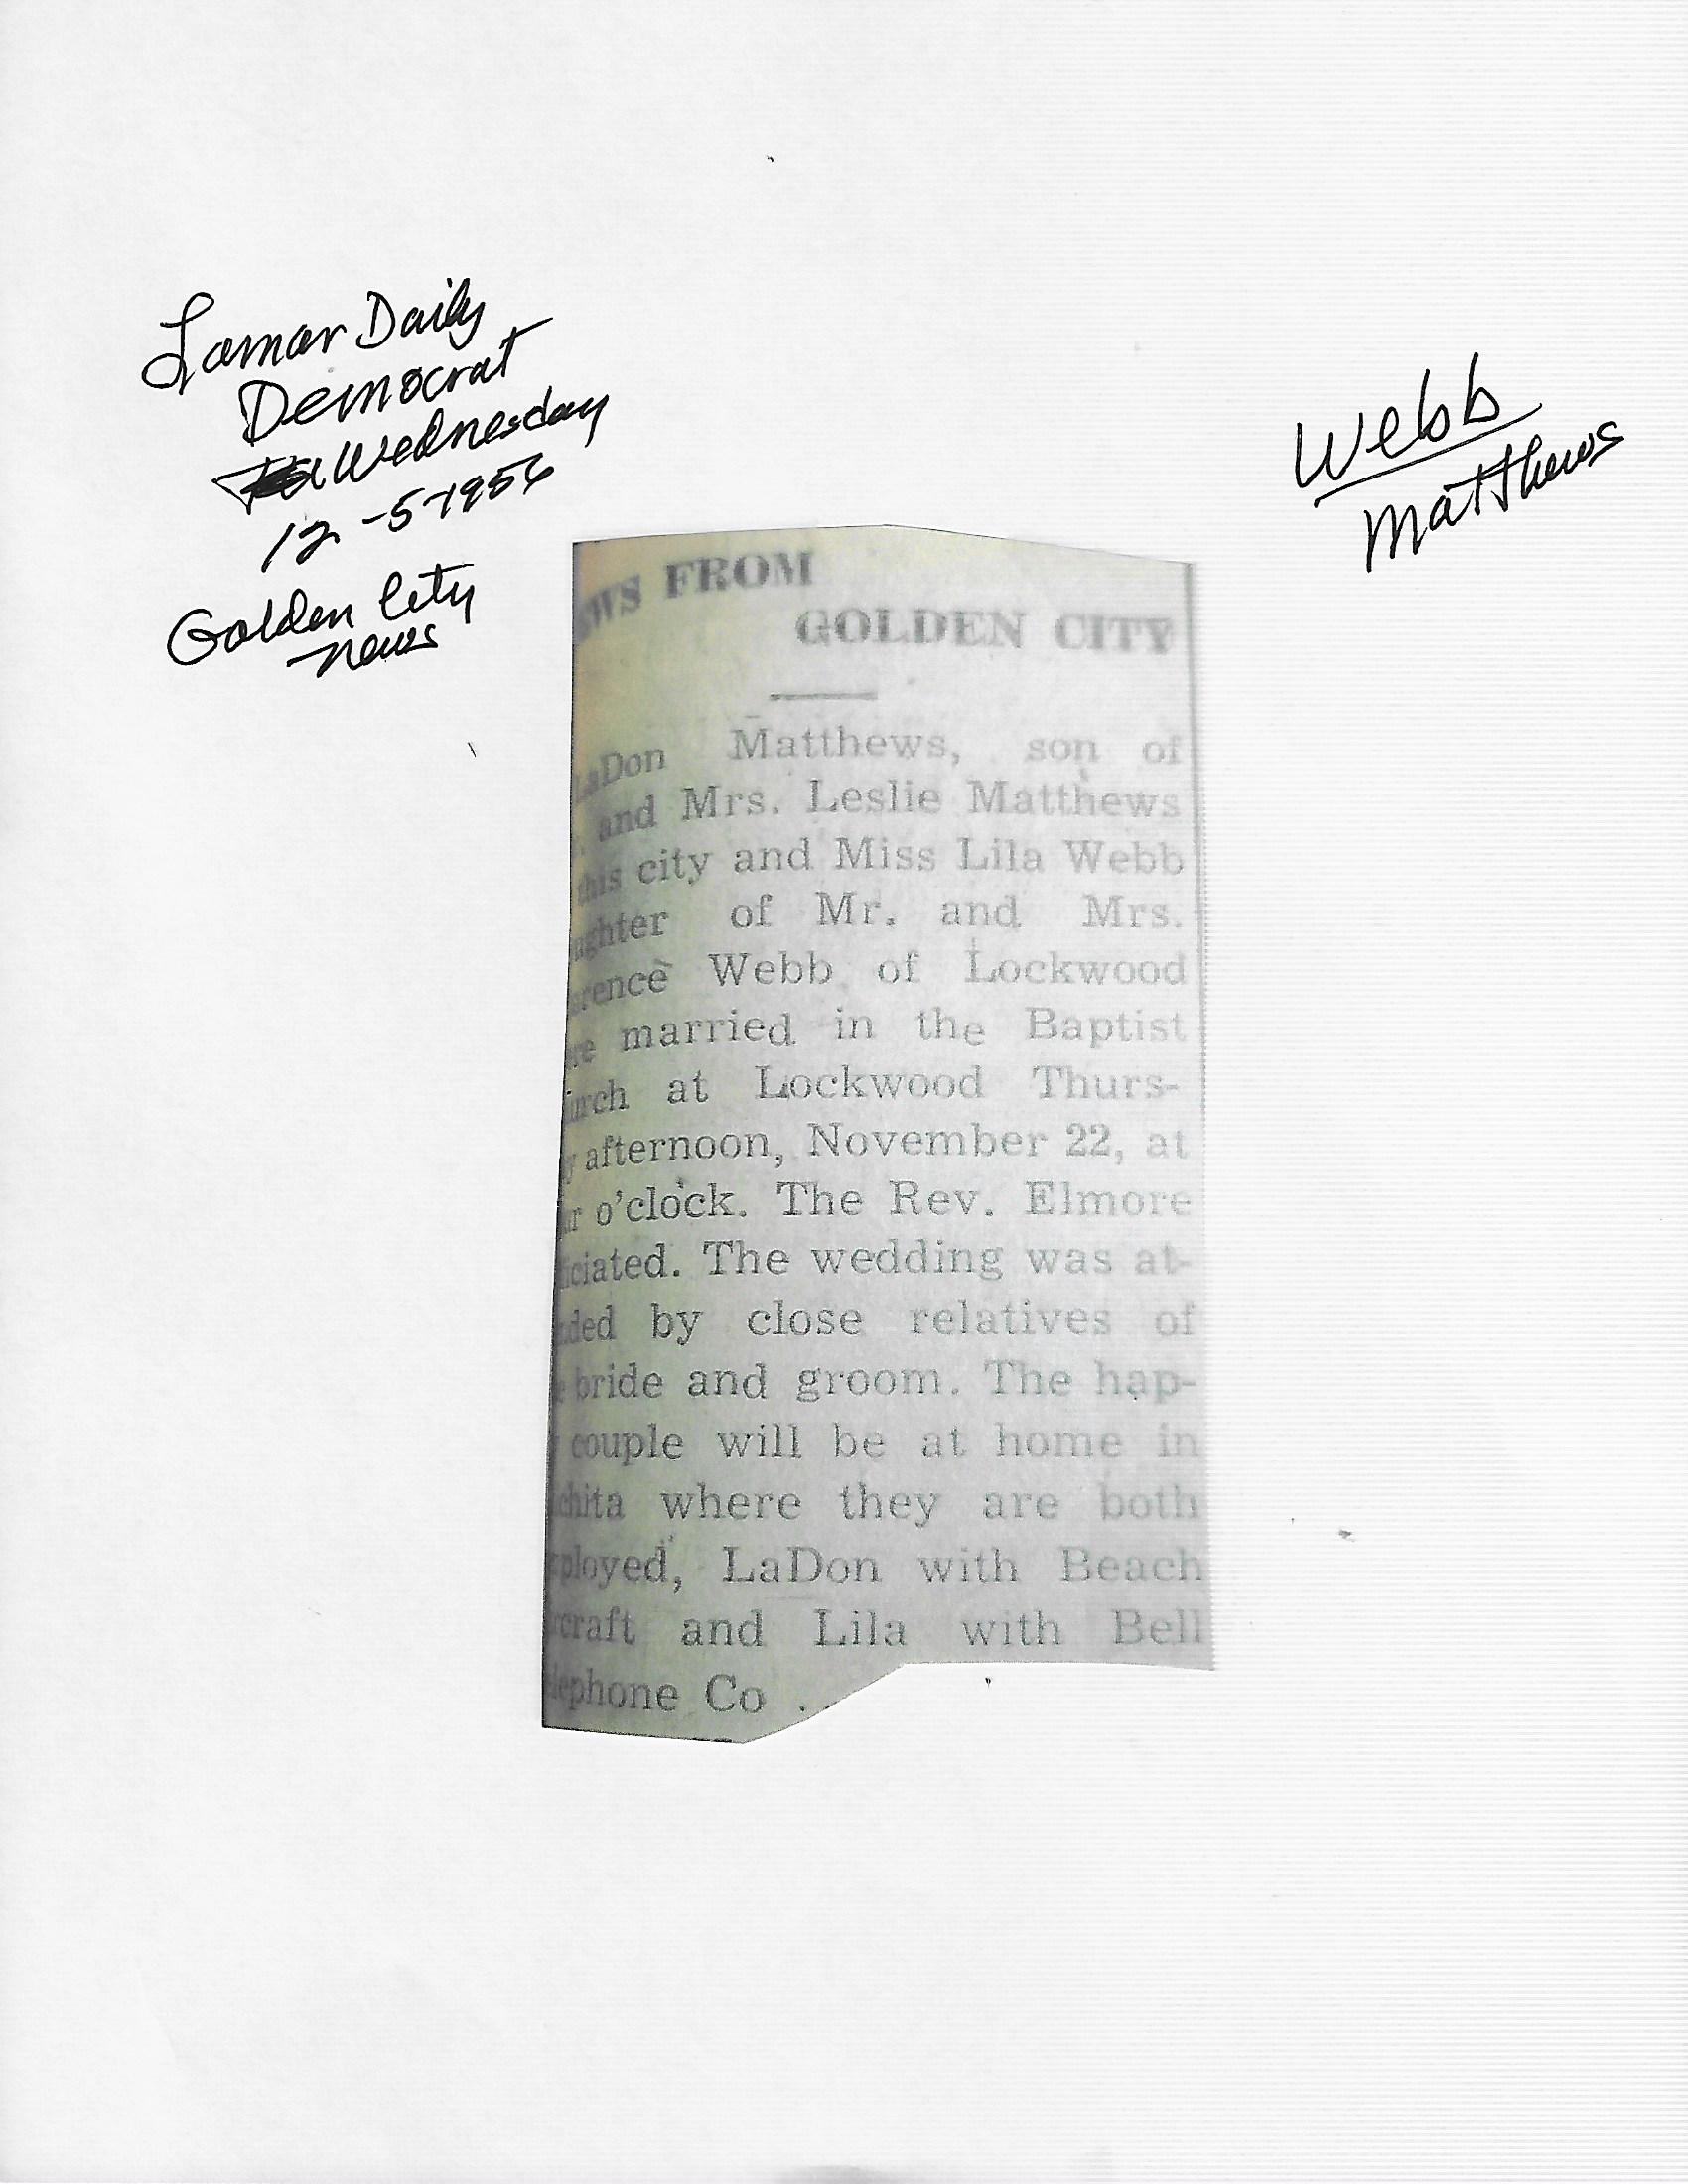 Lamar Daily
Democrat
Wednesday
12-5-1956
Golden City
news
Webb
Matthews
EWS FROM
GOLDEN CITY
LaDon Matthews, son of
. and Mrs. Leslie Matthews
this city and Miss Lila Webb
ughter of Mr. and Mrs.
arence Webb of Lockwood
re married in the Baptist
urch at Lockwood Thurs-
y afternoon, November 22, at
ur o'clock. The Rev. Elmore
ficiated. The wedding was at-
nded by close relatives of
e bride and groom. The hap-
couple will be at home in
chita where they are both
ployed, LaDon with Beach
rcraft and Lila with Bell
lephone Co .